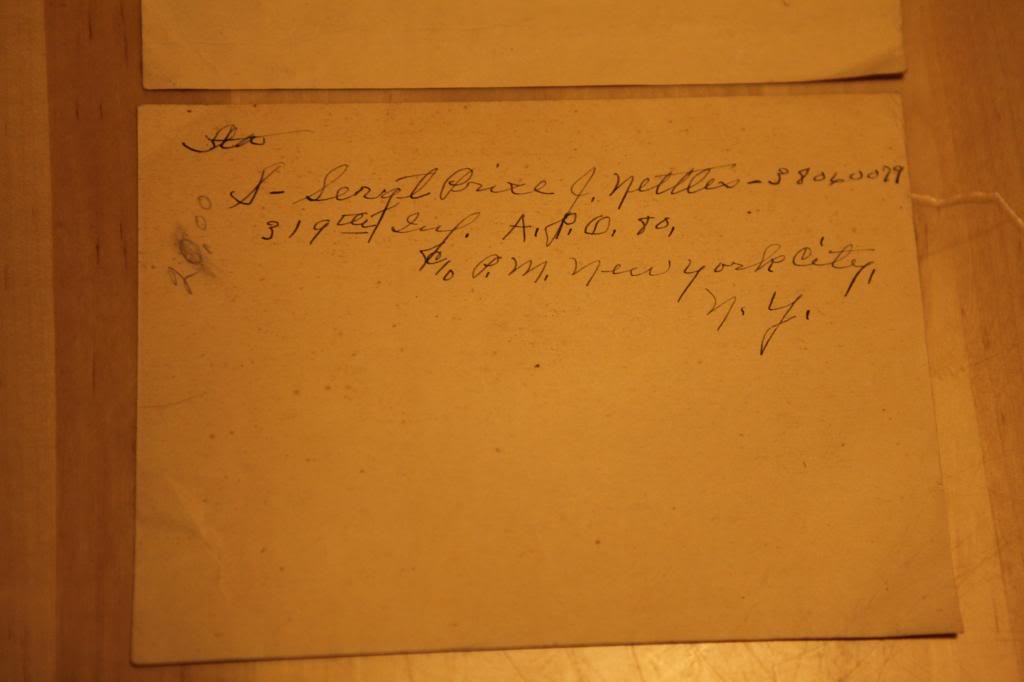 Sta
S- Sergt Price J. Nettles - 38060079
319th Inf. A.P.O. 80,
c/o P.M. New York City,
N.Y.
20.00